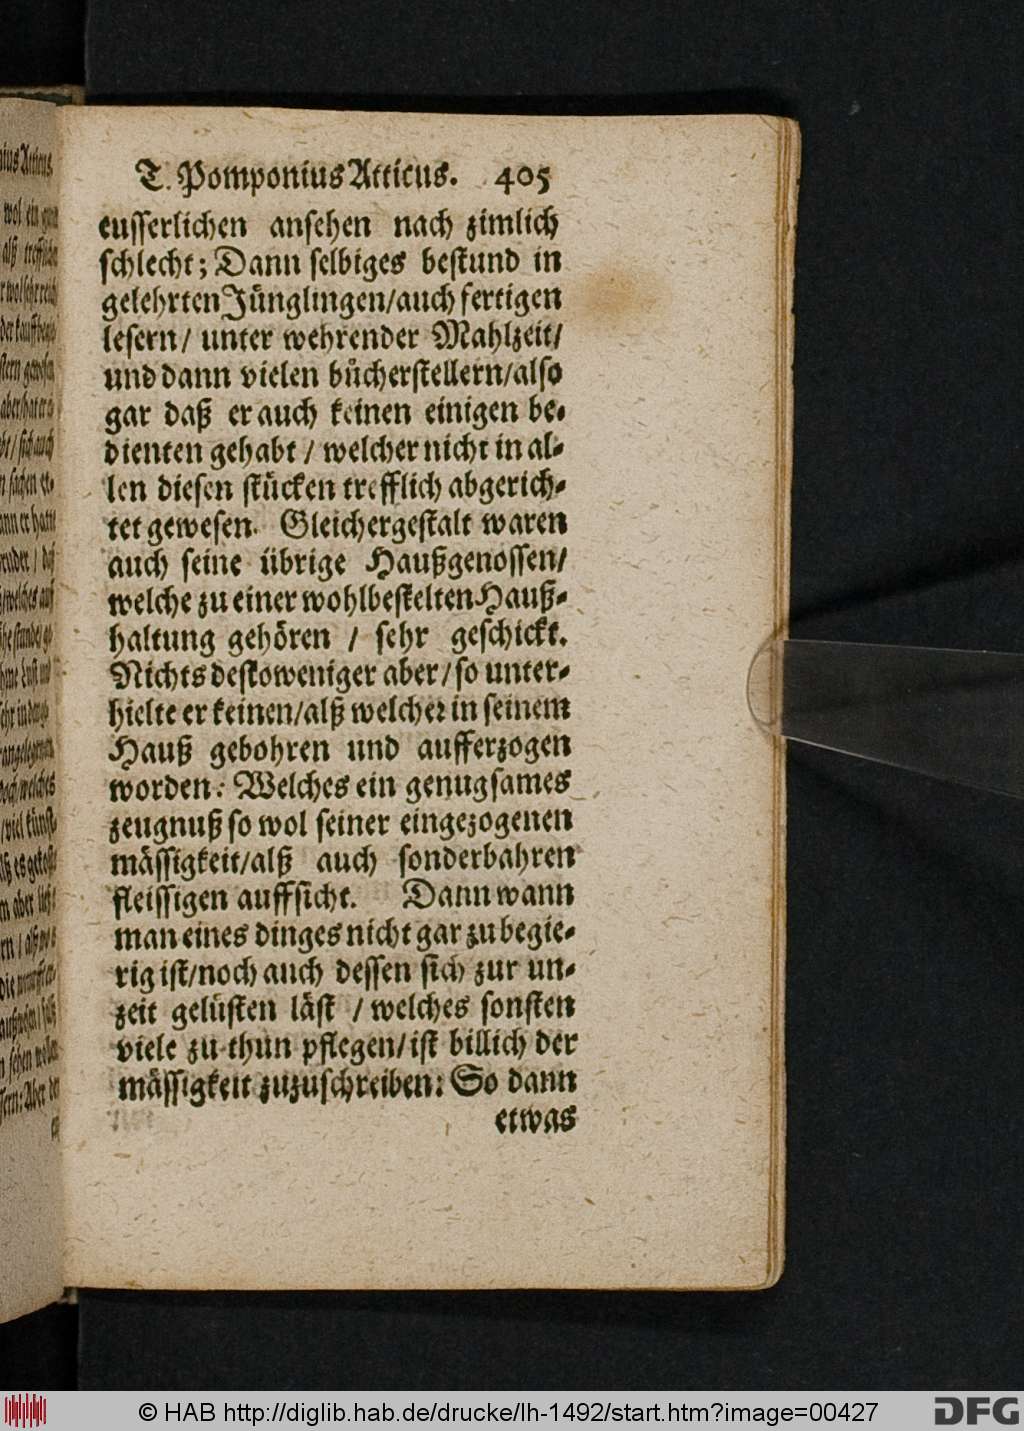 T. Pomponius Atticus. 405
eusserlichen ansehen nach zimlich
schlecht; Dann selbiges bestund in
gelehrten Jünglingen/auch fertigen
lesern/ unter wehrender Mahlzeit/
und dann vielen bücherstellern/also
gar daß er auch keinen einigen be-
dienten gehabt / welcher nicht in al-
len diesen stücken trefflich abgerich-
tet gewesen. Gleichergestalt waren
auch seine übrige Haußgenossen/
welche zu einer wohlbestelten Hauß-
haltung gehören / sehr geschickt.
Nichts destoweniger aber/so unter-
hielte er keinen/alß welcher in seinem
Hauß gebohren und aufferzogen
worden: Welches ein genugsames
zeugnuß so wol seiner eingezogenen
mässigkeit/alß auch sonderbahren
fleissigen auffsicht. Dann wann
man eines dinges nicht gar zu begie-
rig ist/noch auch dessen sich zur un-
zeit gelüsten läst / welches sonsten
viele zu thun pflegen/ist billich der
mässigkeit zuzuschreiben: So dann
etwas
© HAB http://diglib.hab.de/drucke/lh-1492/start.htm?image=00427
DFG